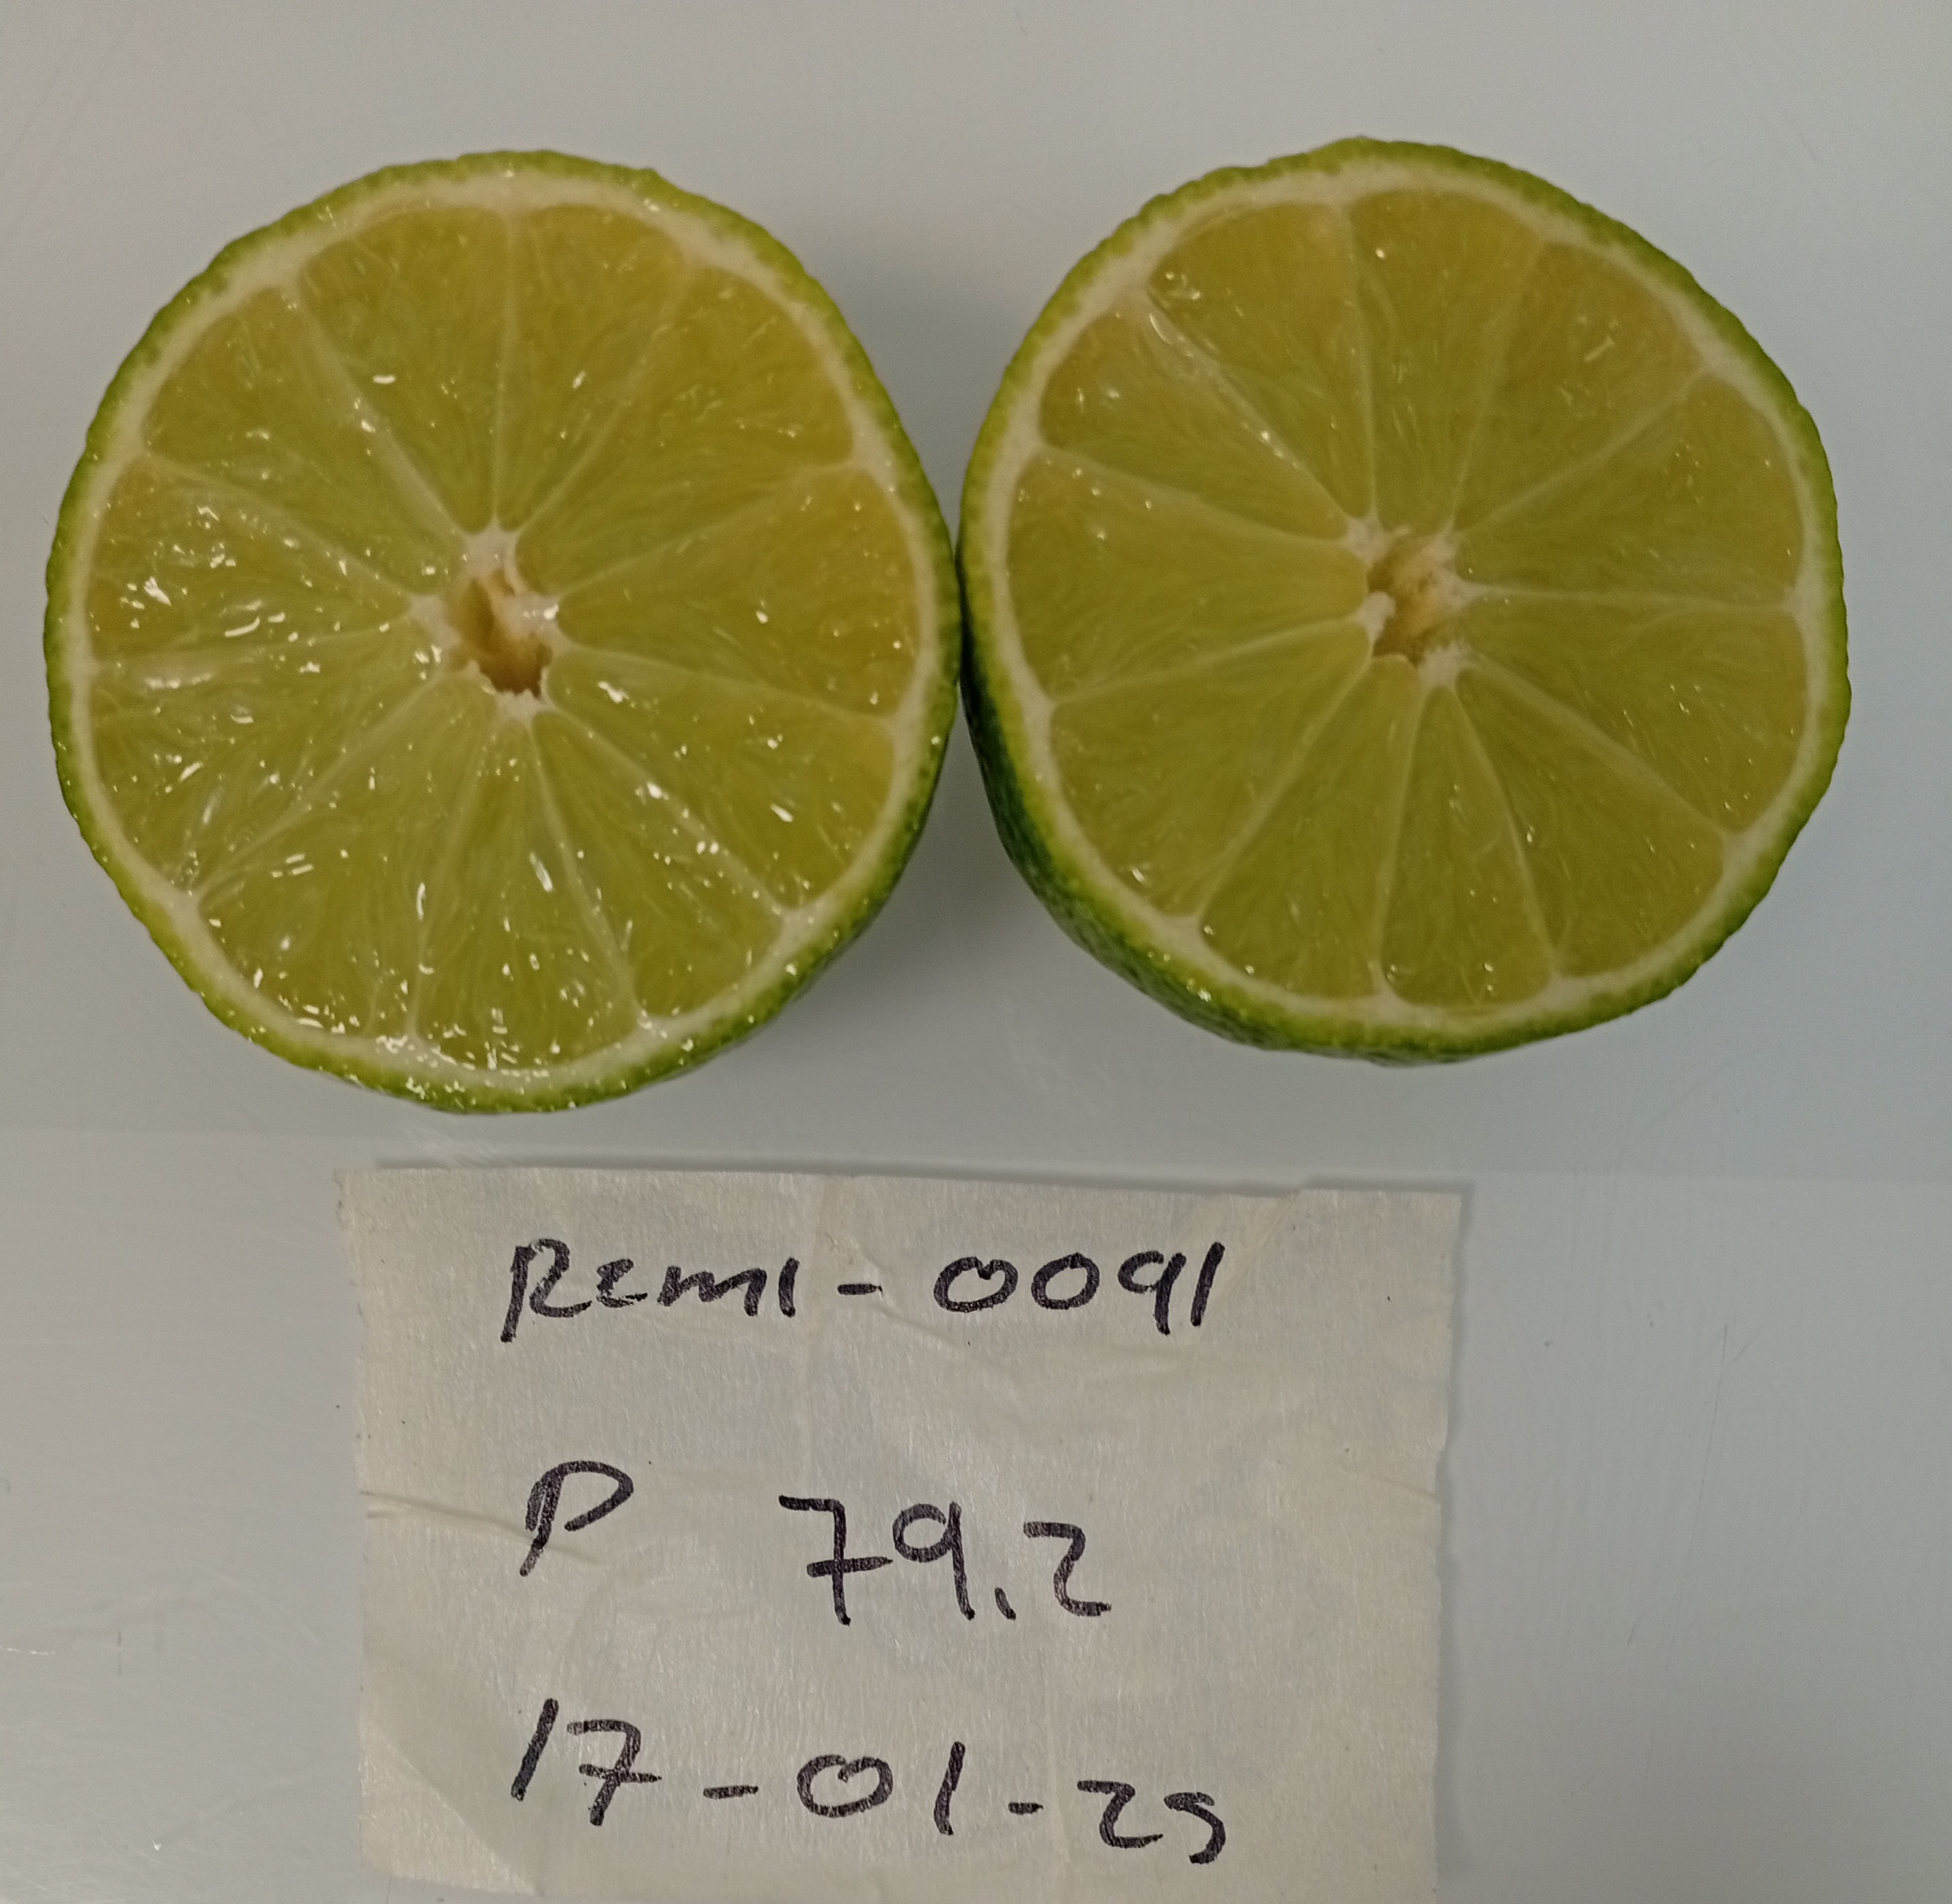 Remi-0091
P 79.2
17-01-25